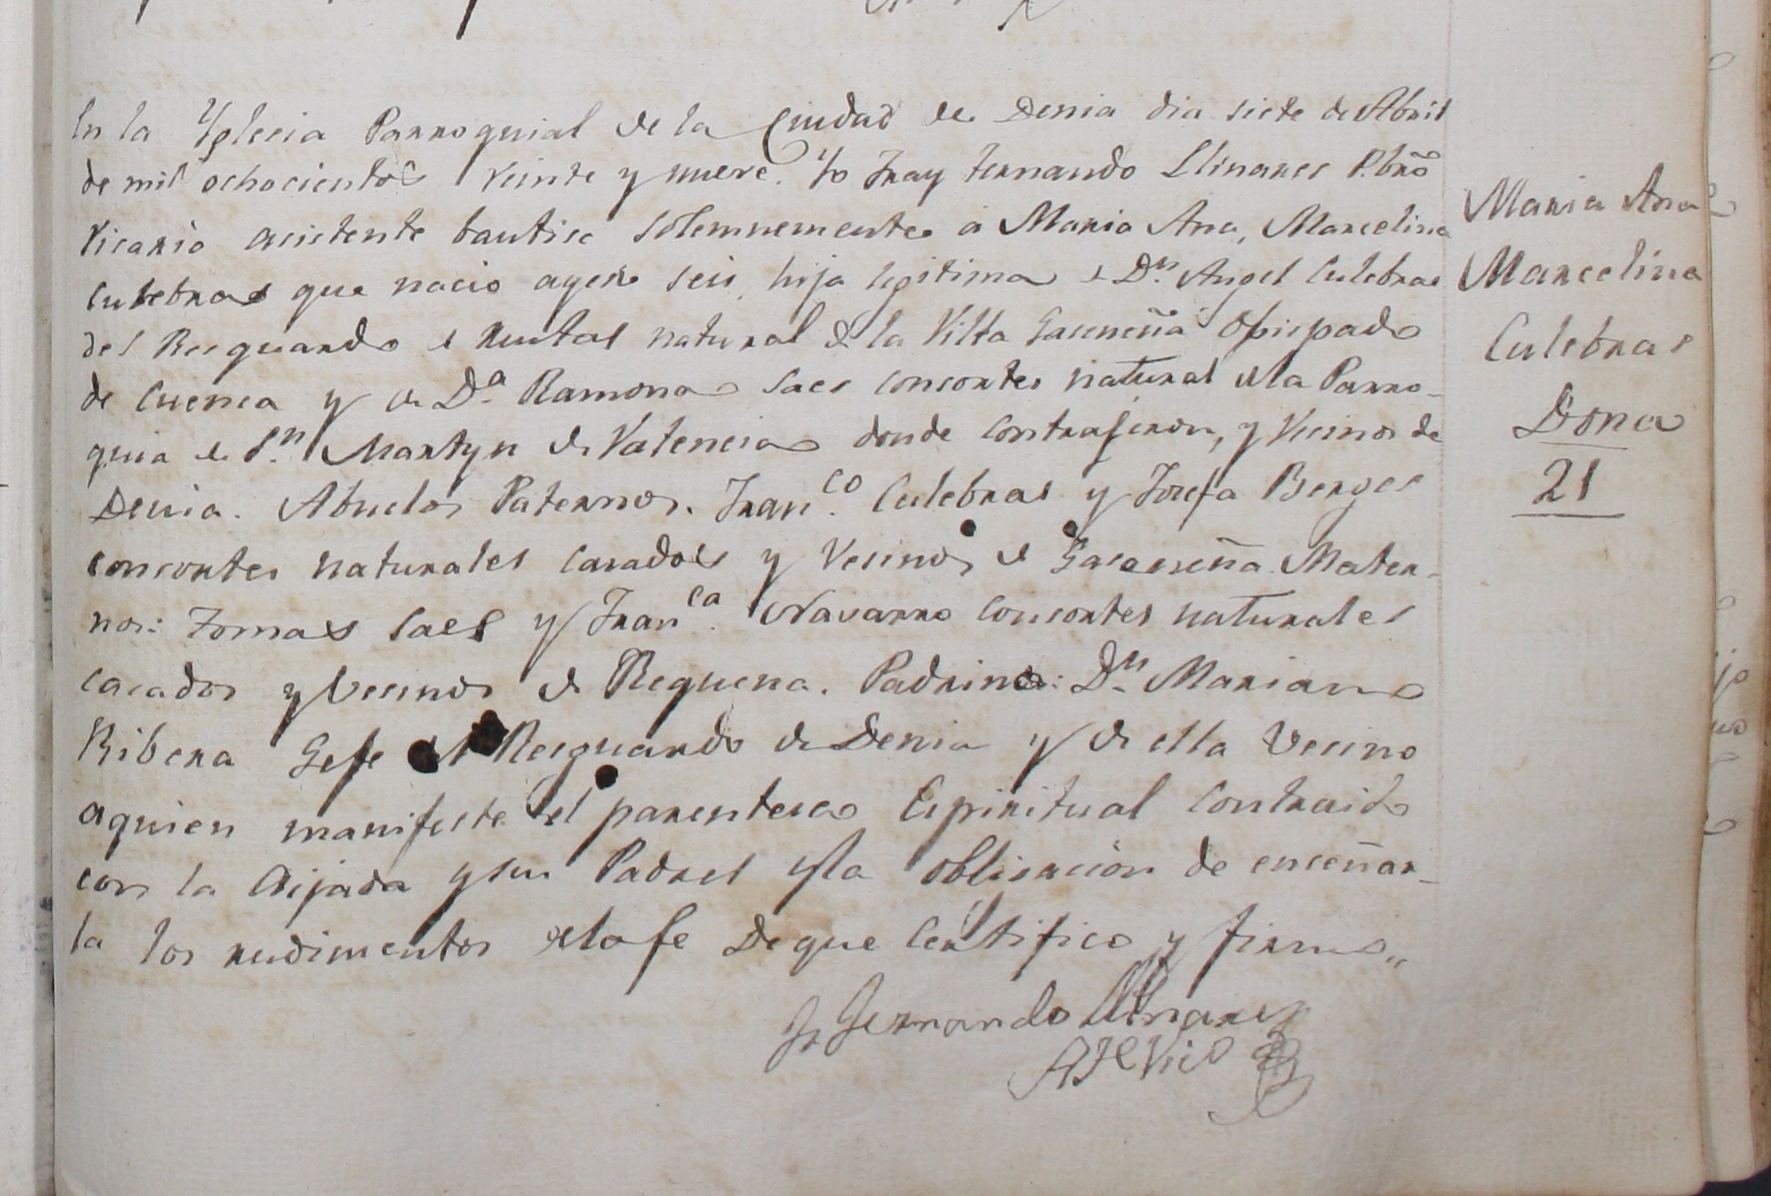 En la Yglesia Parroquial de la Ciudad de Denia dia siete de Abril
de mil ochocientos veinte y nueve. Yo Fray Fernando Llinares Pbro
Vicario asistente bautise solemnemente a Maria Ana, Marcelina
Culebras que nacio ayer seis, hija legitima de Dn. Angel Culebras
del Resguardo de Rentas natural de la Villa Gasceneña Opispado
de Cuenca y de Da. Ramona Saes consortes natural de la Parro-
quia de Sn. Martyn de Valencia donde contrajeron, y Vecinos de
Denia. Abuelos Paternos. Franco. Culebras y Josefa Berges
consortes naturales casados y Vecinos de Gasceneña. Mater-
nos: Tomas Saes y Franca. Navarro consortes naturales
casados y Vecinos de Requena. Padrino: Dn. Mariano
Ribera Gefe del Resguardo de Denia y de ella Vecino
aquien manifeste el parentesco Espiritual contraido
con la Aijada y sus Padres y la obligacion de enseñar-
la los rudimentos de la fe De que Certifico y firmo,,
Fr Fernando Llinares
Maria Ana
Marcelina
Culebras
Dona
21